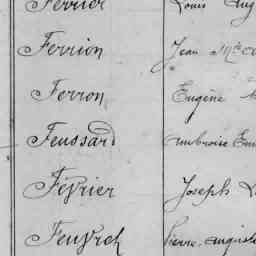 Ferrier Louis Aug
Ferrion Jean
Ferron Eugène
Feussard Ambroise Em
Février Joseph L
Feuvrel Pierre Auguste